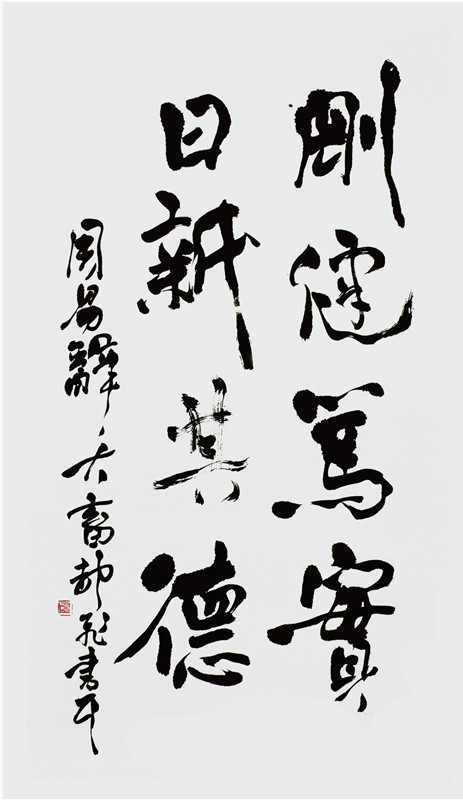 剛健篤實
日新其德
周易大畜書